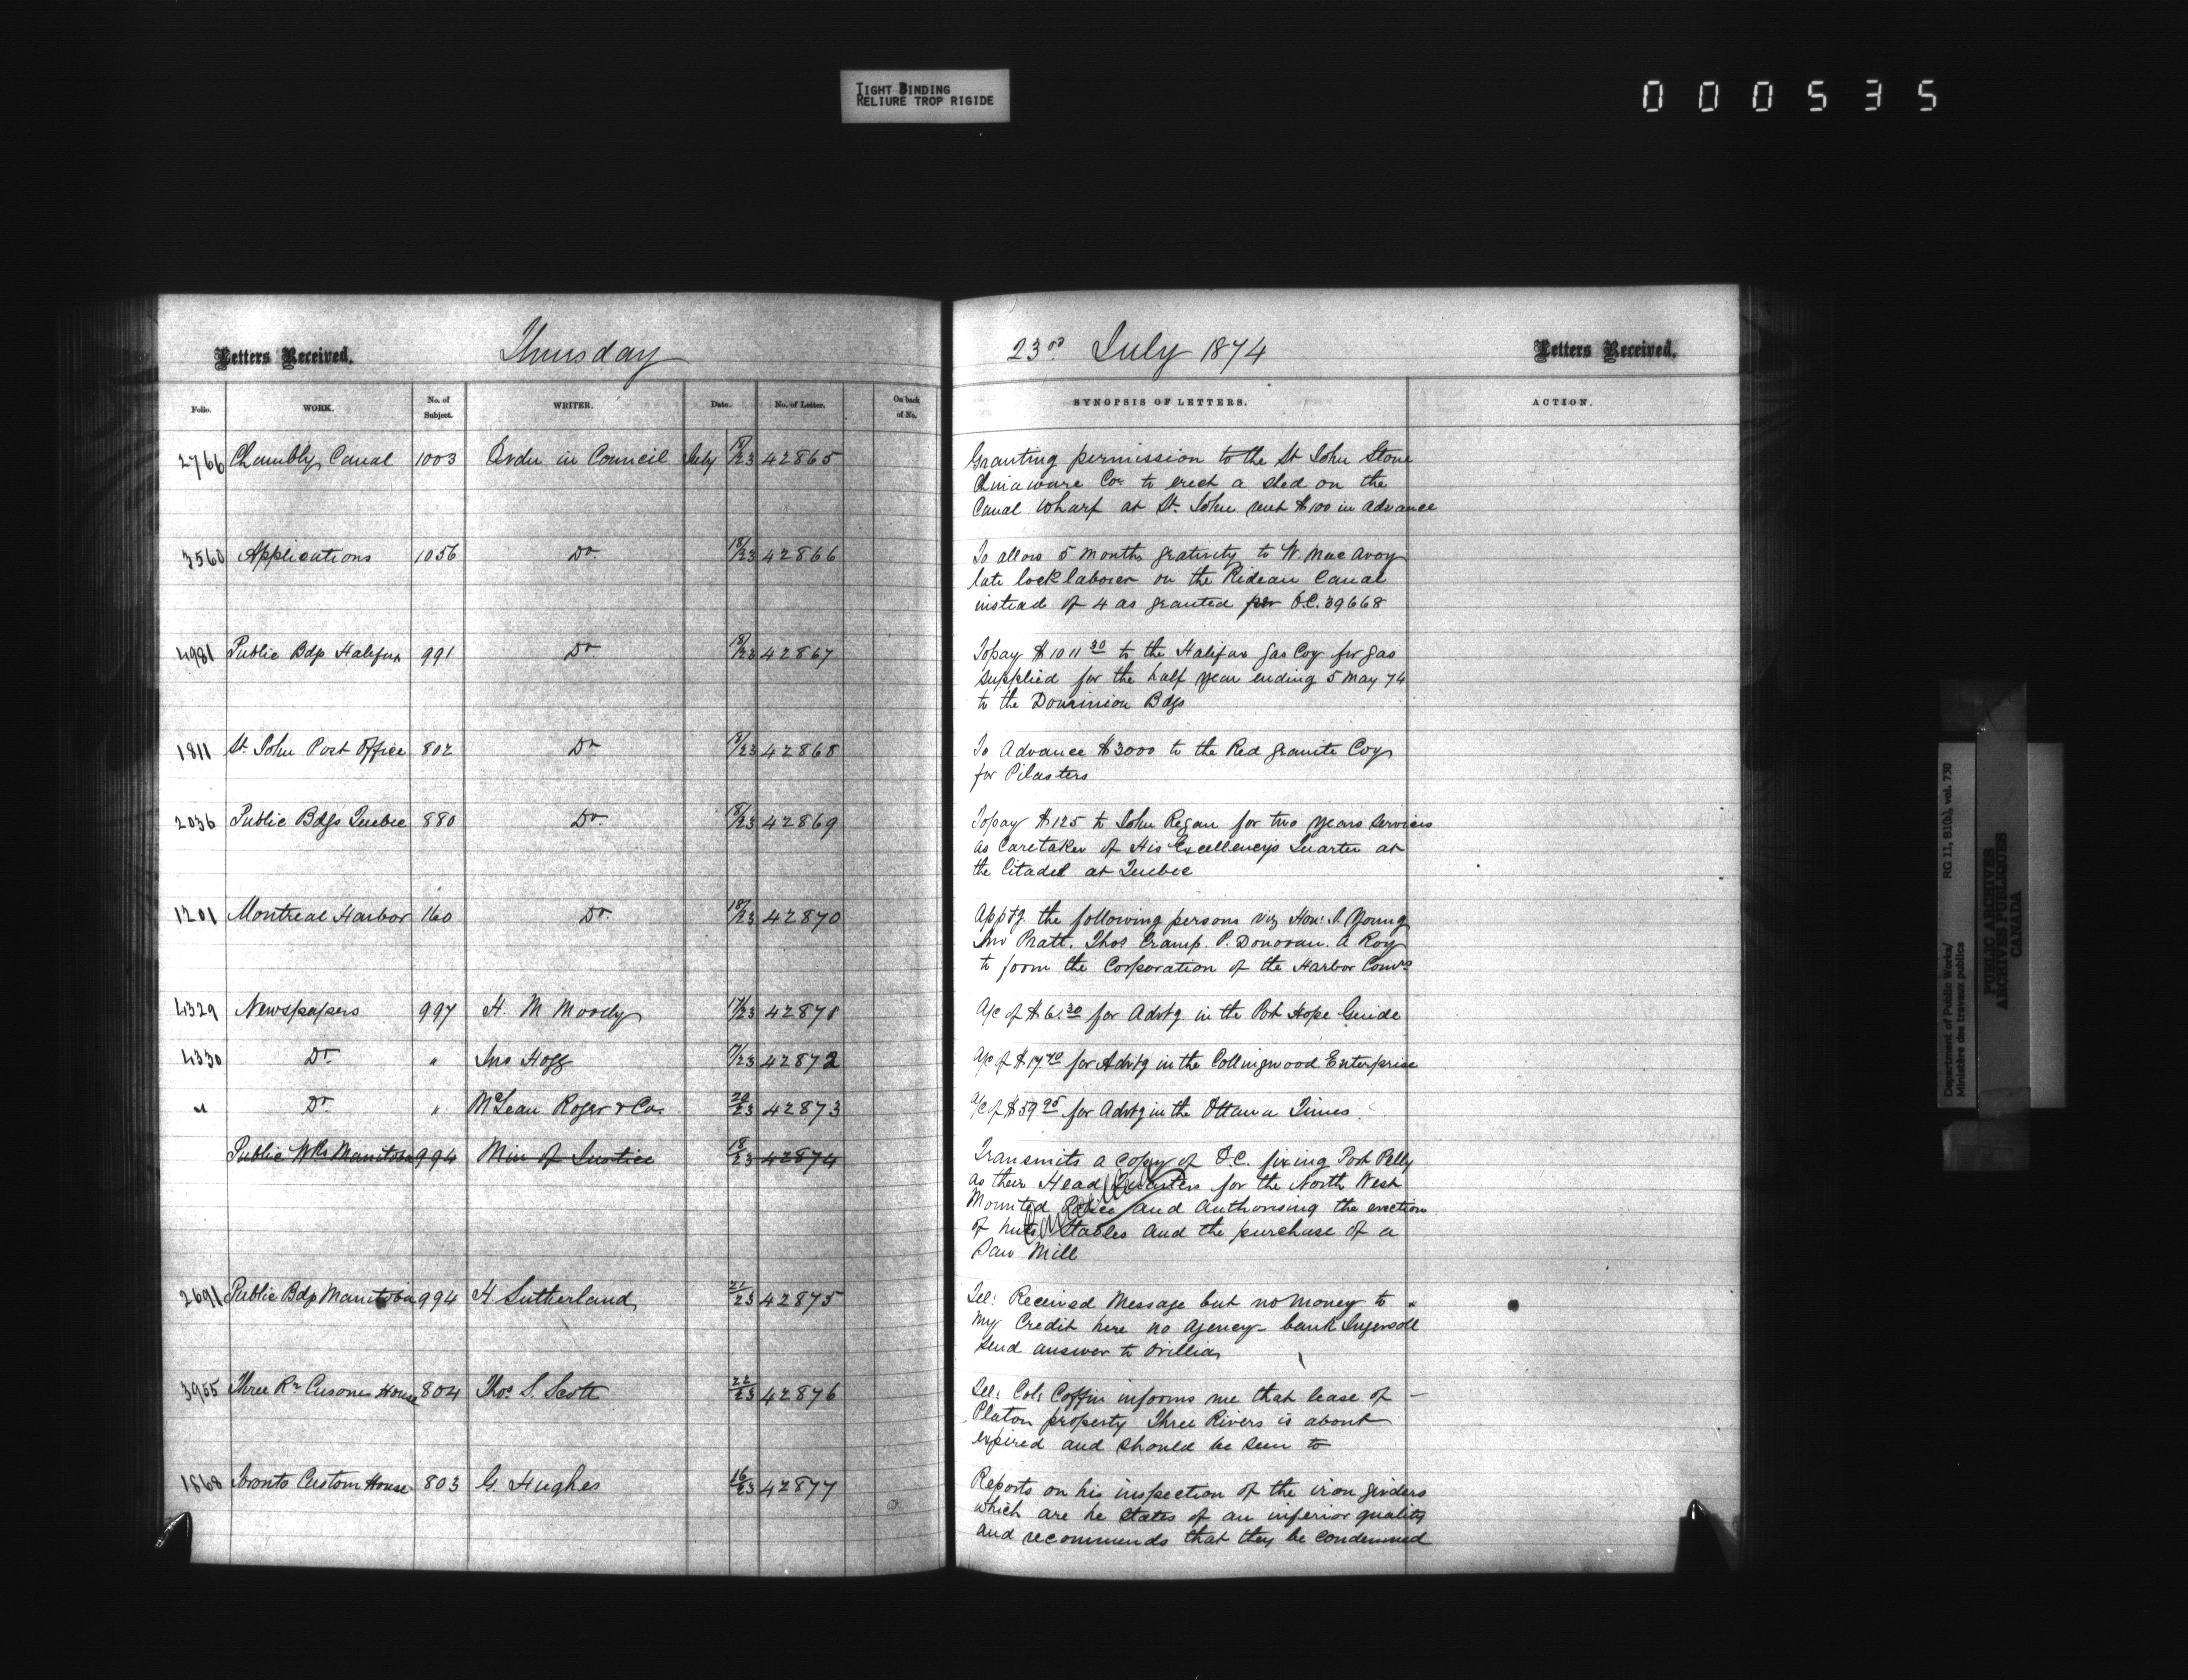 TIGHT BINDING
RELIURE TROP RIGIDE
000535
Letters Received. Thursday
Folio. WORK. No. of Subject. WRITER. Date. No. of Letter. On back of No.
2766 Chambly Canal 1003 Order in Council July 18/23 42865
3560 Applications 1056 Do 18/23 42866
4981 Public Bdgs Halifax 991 Do 18/23 42867
1811 St. John Post Office 802 Do 18/23 42868
2036 Public Bdgs Quebec 880 Do 18/23 42869
1201 Montreal Harbor 160 Do 18/23 42870
4329 Newspapers 997 H. M Moody 17/23 42871
4330 Do " Jno Hogg 7/23 42872
" Do " McLean Roger & Co. 20/23 42873
Public Wks Manitoba 994 Min of Justice 18/23 42874
2691 Public Bdgs Manitoba 994 H. Sutherland 21/23 42875
3955 Three Rs Cusom House 804 Thos S. Scott 22/23 42876
1868 Toronto Custom House 803 G. Hughes 16/23 42877
23rd July 1874 Letters Received.
SYNOPSIS OF LETTERS. ACTION.
Granting permission to the St John Stone
Chinaware Co. to erect a shed on the
Canal Wharf at St. John rent $100 in advance
To allow 5 months gratuity to W. Mac Avoy
late lock laborer on the Rideau Canal
instead of 4 as granted per O.C. 39668
To pay $1011 30 to the Halifax Gas Coy for gas
supplied for the half year ending 5 May 74
to the Dominion Bdgs
To Advance $3000 to the Red Granite Coy
for Pilasters
To pay $125 to John Regan for two years services
as Caretaker of His Excellency's Quarter at
the Citadel at Quebec
Apptg the following persons viz Hon: J. Young
Jno Pratt. Thos Cramp. P. Donovan. A Roy
to form the Corporation of the Harbor Comrs
A/c of $6.30 for Advtg. in the Port Hope Guide
A/c of $17.40 for Advtg in the Collingwood Enterprise
A/c of $59 95 for Advtg in the Ottawa Times
Transmits a copy of O.C. fixing Port Pelly
as their Head Quarters for the North West
Mounted Police and Authorising the erection
of huts Stables and the purchase of a
Saw Mill
Tel: Received Message but no money to
my Credit here no agency bank Ingersoll
send answer to Orillia
Tel: Col: Coffin informs me that lease of
Platon property Three Rivers is about
expired and should be seen to
Reports on his inspection of the iron girders
which are he states of an inferior quality
and recommends that they be condemned
Department of Public Works/ RG 11, B1(b), vol. 730
Ministère des travaux publics
PUBLIC ARCHIVES
ARCHIVES PUBLIQUES
CANADA